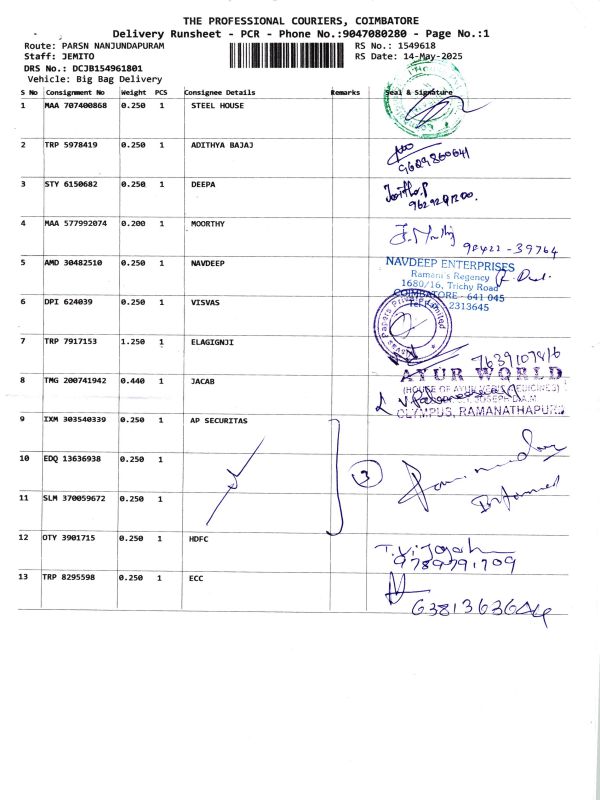 THE PROFESSIONAL COURIERS, COIMBATORE
Delivery Runsheet - PCR - Phone No.:9047080280 - Page No.:1
Route: PARSN NANJUNDAPURAM
RS No.: 1549618
Staff: JEMITO
RS Date: 14-May-2025
DRS No.: DCJB154961801
Vehicle: Big Bag Delivery
S No Consignment No Weight PCS Consignee Details Remarks Seal & Signature
1 MAA 707400868 0.250 1 STEEL HOUSE
2 TRP 5978419 0.250 1 ADITHYA BAJAJ
3 STY 6150682 0.250 1 DEEPA
4 MAA 577992074 0.200 1 MOORTHY
98422-39764
5 AMD 30482510 0.250 1 NAVDEEP
NAVDEEP ENTERPRISES
Ramani's Regency
1680/16, Trichy Road
COIMBATORE - 641 045
2313645
6 DPI 624039 0.250 1 VISVAS
Papers Private Limited
7 TRP 7917153 1.250 1 ELAGIGNJI
8 TMG 200741942 0.440 1 JACAB
AYUR WORLD
(HOUSE OF MEDICINES)
OLYMPUS, RAMANATHAPURM
9 IXM 303540339 0.250 1 AP SECURITAS
10 EDQ 13636938 0.250 1
3
11 SLM 370059672 0.250 1
12 OTY 3901715 0.250 1 HDFC
9789791709
13 TRP 8295598 0.250 1 ECC